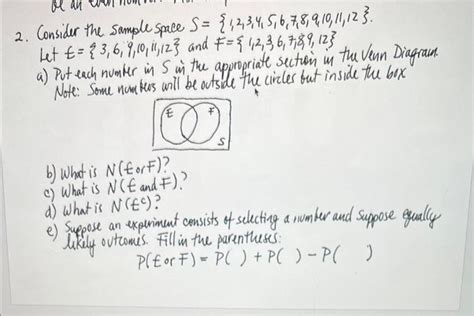 be an even num
2. Consider the sample space S = {1,2,3,4,5,6,7,8,9,10,11,12}.
Let E = {3,6,9,10,11,12} and F = {1,2,3,6,7,8,9,12}
a) Put each number in S in the appropriate section in the Venn Diagram
Note: Some numbers will be outside the circles but inside the box
E F
S
b) What is N(E or F)?
c) What is N(E and F)?
d) What is N(Eᶜ)?
e) Suppose an experiment consists of selecting a number and suppose equally
likely outcomes. Fill in the parentheses:
P(E or F) = P( ) + P( ) - P( )